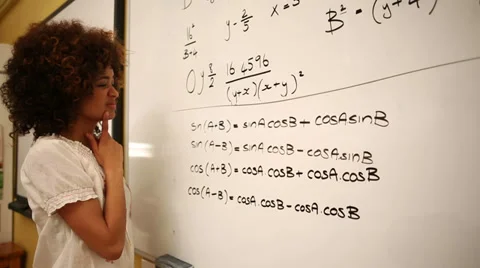 y - 2/5
x = 5
B² = (y+4)
16²/B+4
0 y 8/2 164596/(y+x)(x+y)²
sin(A+B) = sinA cosB + cosAsinB
sin(A-B) = sinA cosB - cosAsinB
cos(A+B) = cosA.cosB + cosA.cosB
cos(A-B) = cosA.cosB - cosA.cosB